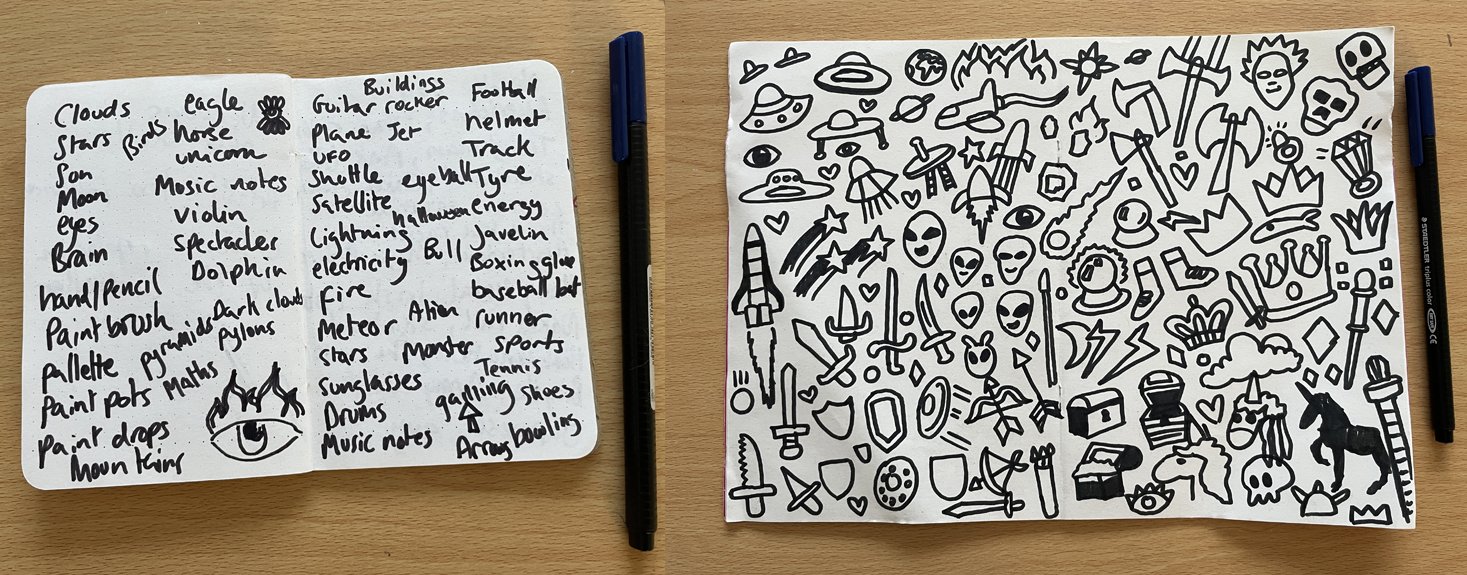 Clouds
Stars
Son
Moon
eyes
Brain
hand/pencil
Paintbrush
pallette
Paint pots
paint drops
Mountains
Birds
eagle
horse
unicorn
Mosic notes
violin
spectacles
Dolphin
Dark clouds
pyramids
pylons
Maths
Buildings
Guitar rocker
Plane Jet
UFO
Shuttle
Satellite
Lightning
electricity
Fire
Meteor
Stars
Sunglasses
Drums
Music notes
eyeball
halloween
Ball
Alien
Monster
gaming
Array
Football
helmet
Track
Tyre
energy
Javelin
Boxing glove
baseball bat
runner
sports
Tennis
Shoes
bowling
STAEDTLER triplus color
CE